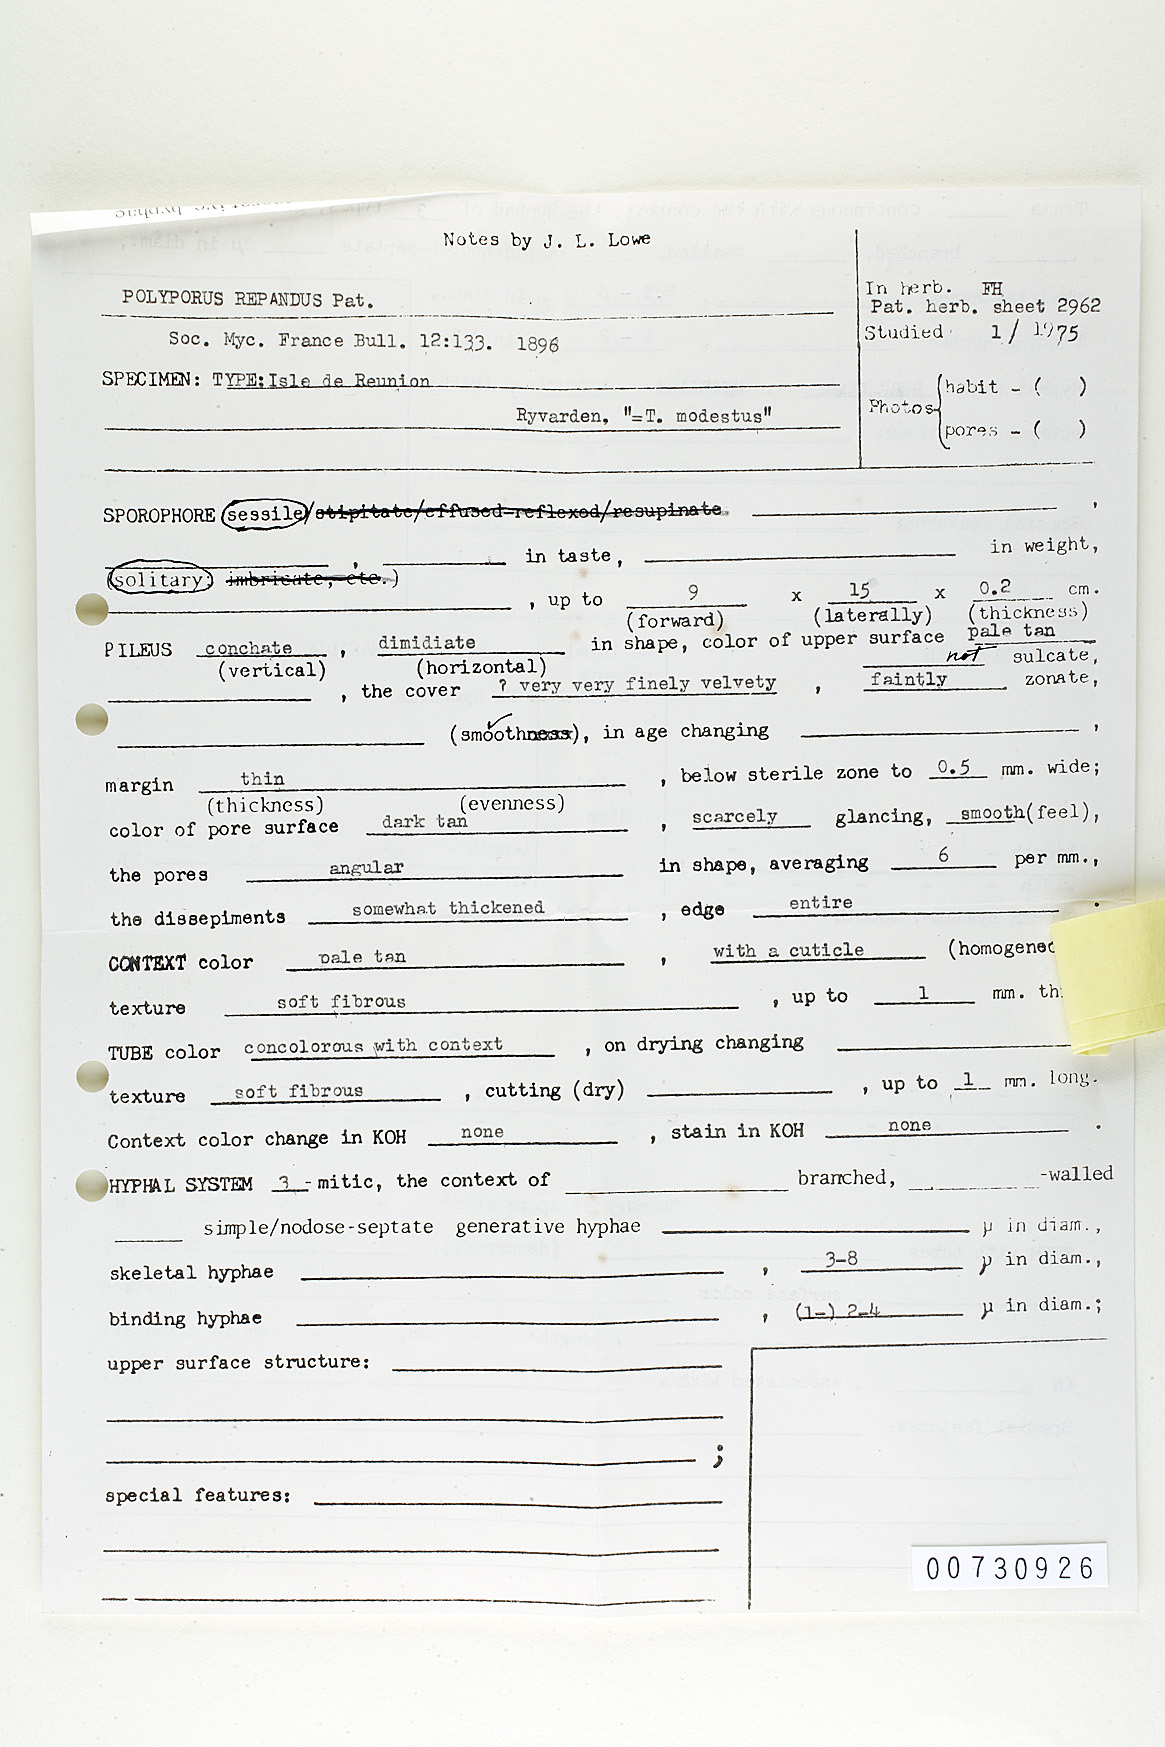 Notes by J. L. Lowe
POLYPORUS REPANDUS Pat.
Soc. Myc. France Bull. 12:133. 1896
SPECIMEN: TYPE:Isle de Reunion
Ryvarden, "=T. modestus"
In herb. FH
Pat. herb. sheet 2962
Studied 1/1975
Photos
habit - ( )
pores - ( )
SPOROPHORE sessile/stipitate/effused-reflexed/resupinate ,
, in taste, in weight,
(solitary; imbricate, etc.)
, up to 9 x 15 x 0.2 cm.
(forward) (laterally) (thickness)
PILEUS conchate , dimidiate in shape, color of upper surface pale tan
(vertical) (horizontal) not sulcate,
, the cover ? very very finely velvety , faintly zonate,
(smoothness), in age changing ,
margin thin , below sterile zone to 0.5 mm. wide;
(thickness) (evenness)
color of pore surface dark tan , scarcely glancing, smooth(feel),
the pores angular in shape, averaging 6 per mm.,
the dissepiments somewhat thickened , edge entire .
CONTEXT color pale tan , with a cuticle (homogeneo
texture soft fibrous , up to 1 mm. th
TUBE color concolorous with context , on drying changing
texture soft fibrous , cutting (dry) , up to 1 mm. long.
Context color change in KOH none , stain in KOH none .
HYPHAL SYSTEM 3-mitic, the context of branched, -walled
simple/nodose-septate generative hyphae µ in diam.,
skeletal hyphae , 3-8 µ in diam.,
binding hyphae , (1-) 2-4 µ in diam.;
upper surface structure:
;
special features:
00730926